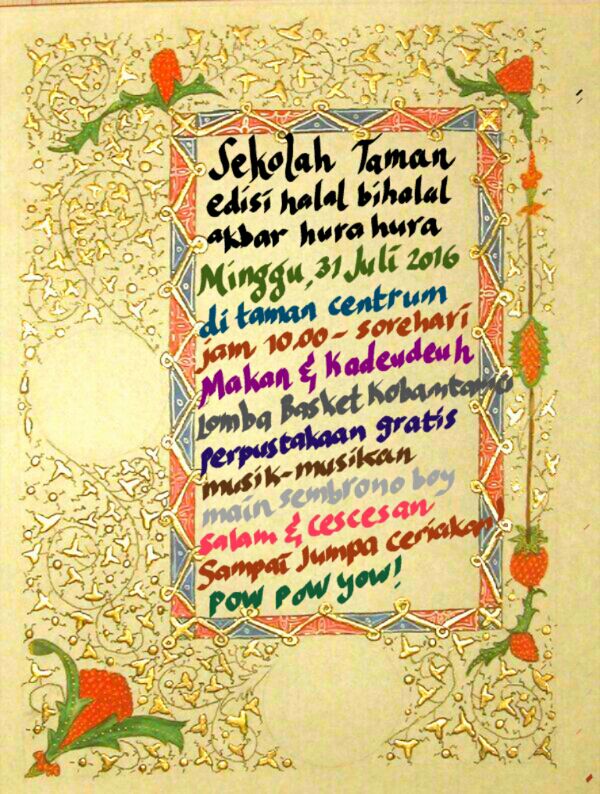 Sekolah Taman
edisi halal bihalal
akbar hura hura
Minggu, 31 Juli 2016
di taman centrum
jam 10.00 - sorehari
Makan & Kadeudeuh
Lomba Basket
perpustakaan gratis
musik-musikan
main sembrono boy
salam & cescesan
Sampai Jumpa ceriakan!
POW POW YOW!